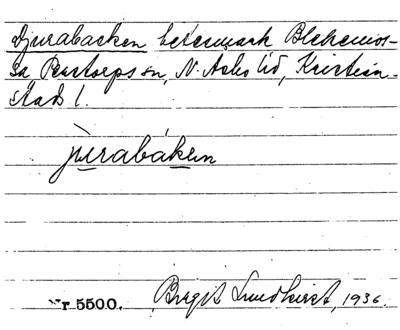 Djurabacken betesmark Blekemos-
sa Perstorps sn, N. Asbo hd, Kristian-
stads l.
jùrabáken
Nr 5500. Birgit Lundkvist, 1936.